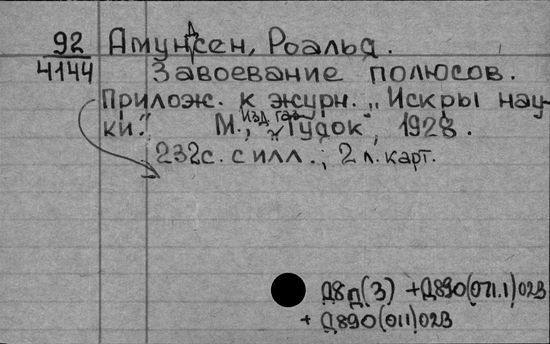 92 Амундсен, Роальд.
4144 Завоевание полюсов.
Прилож. к журн. „Искры нау-
ки". М., Изд. газ. „Гудок", 1928.
232с. с илл.; 2 л. карт.
Д8д(3) +Д890(071.1)023
+ Д890(011)023